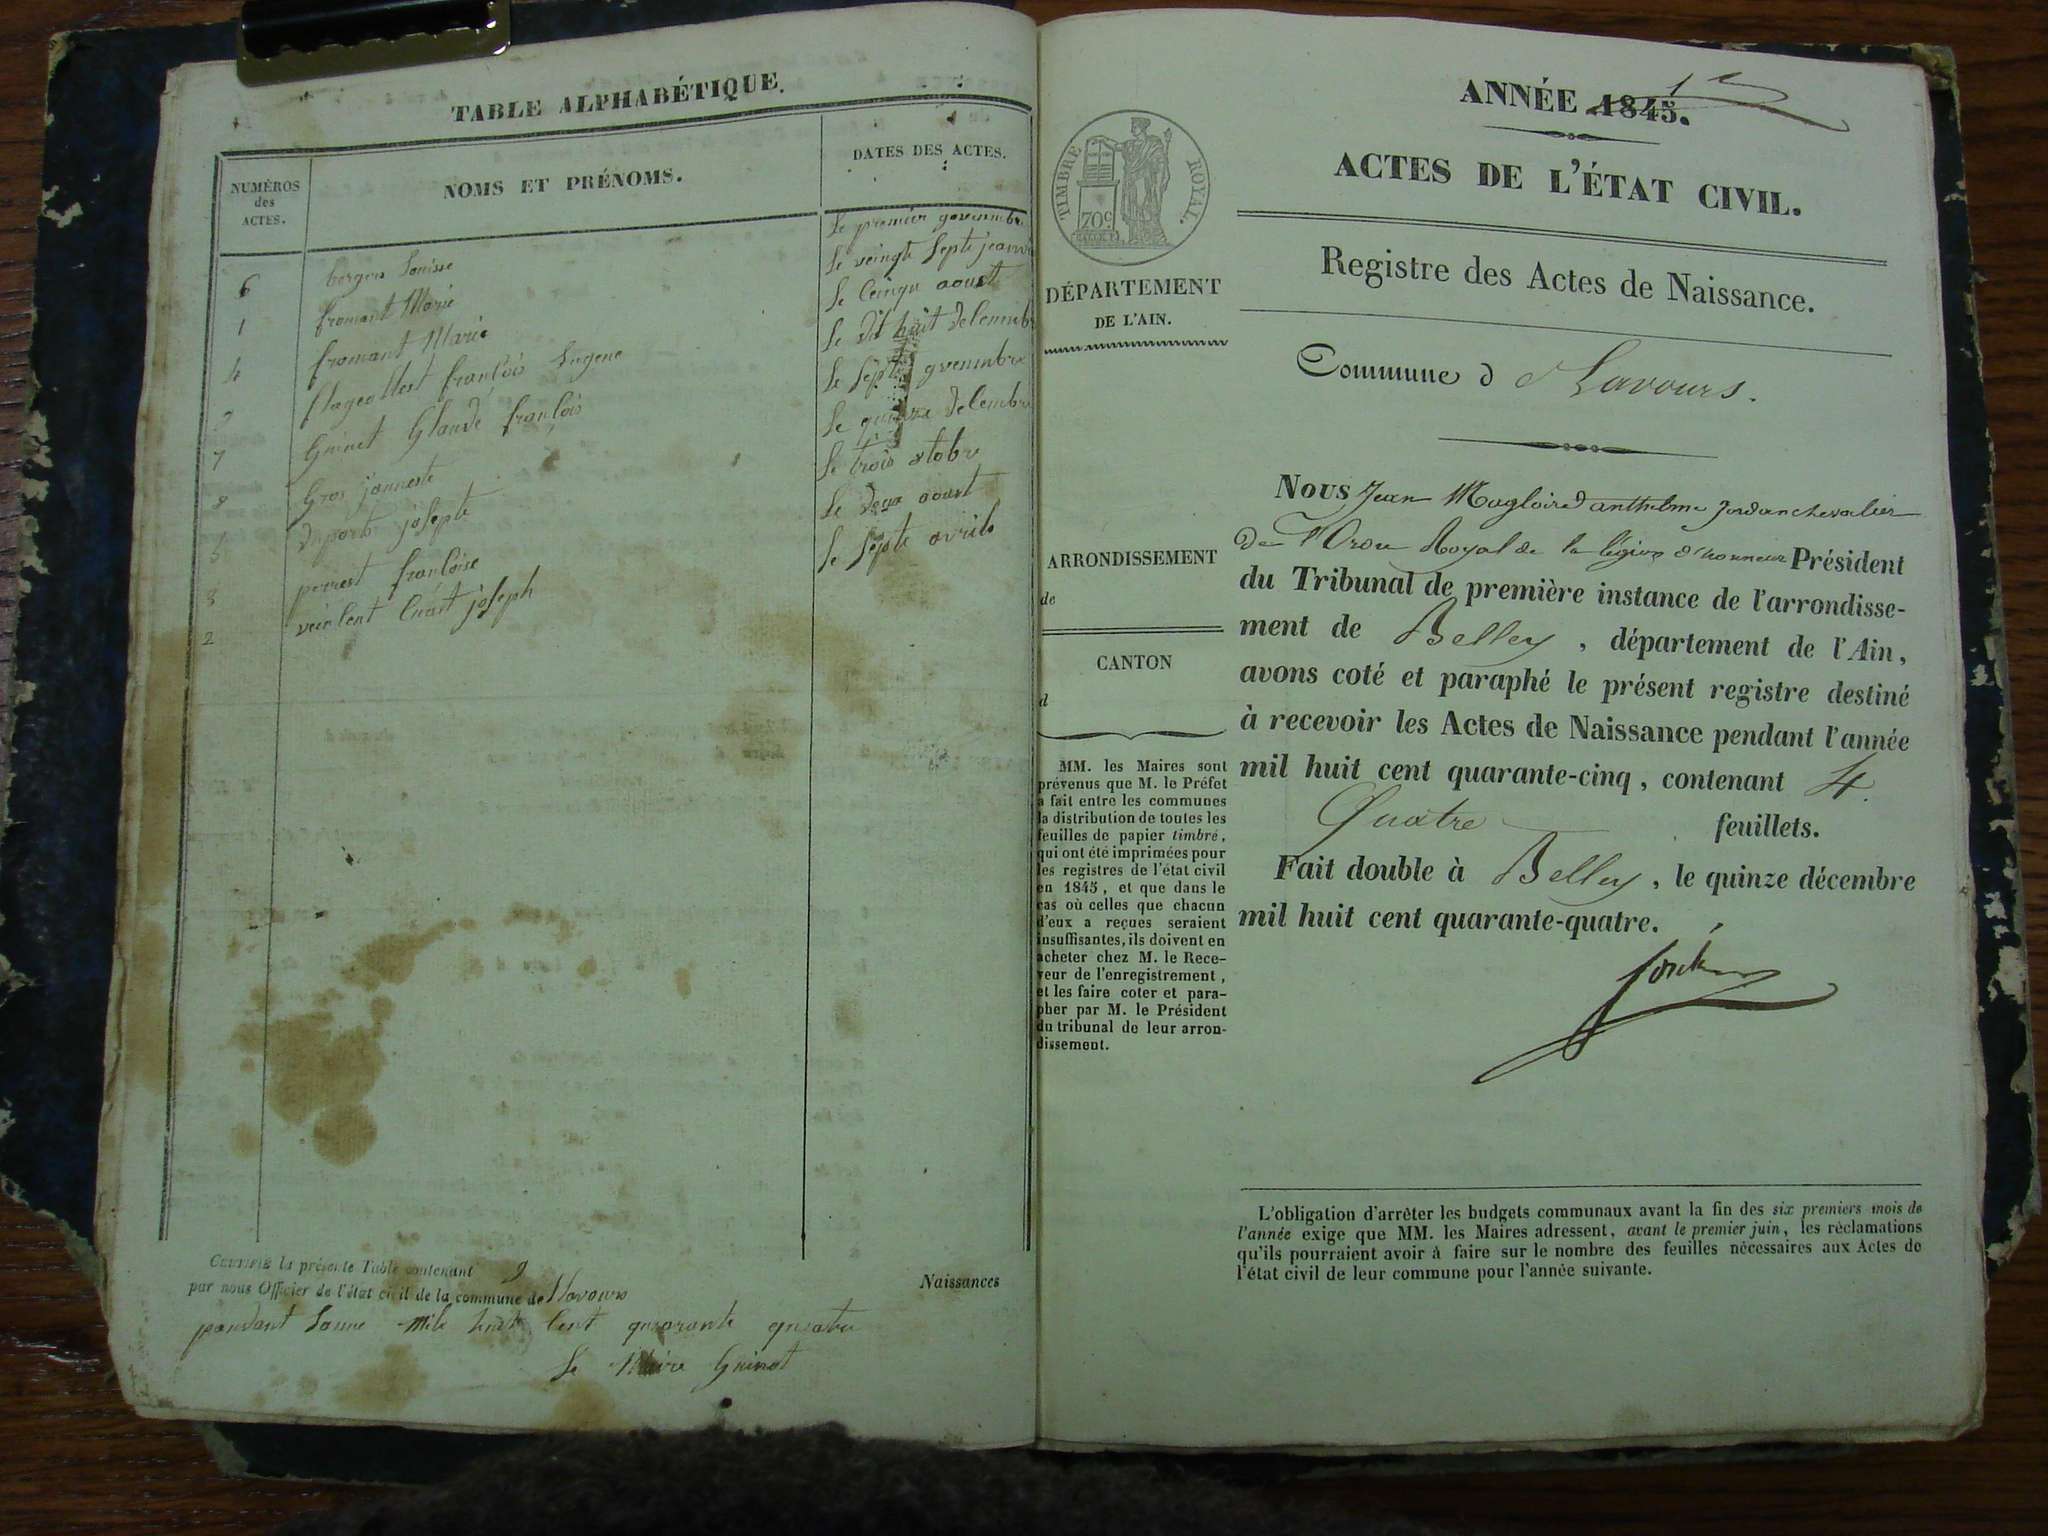 TABLE ALPHABÉTIQUE.
NUMÉROS des ACTES.
NOMS ET PRÉNOMS.
DATES DES ACTES.
6 bergers Louisse le premier
1 fromant Marie le veingt septe
4 fromant Marie le cinqu aoust
9 flageollest françois Eugene le dit huit decembre
7 Guinet Glaude françois le septe
8 Gros janneste le quinze decembre
5 duport josepte le trois octobre
3 perrest françoise le deux aoust
2 joseph le septe avrile
CERTIFIÉ la présente Table contenant 9 Naissances
par nous Officier de l'état civil de la commune de Lavours
pandant Lanne mile huit cent quarante quatre
le Maire Guinet
ANNÉE 1845.
ACTES DE L'ÉTAT CIVIL.
TIMBRE ROYAL.
70c
Registre des Actes de Naissance.
DÉPARTEMENT
DE L'AIN.
Commune d e Lavours.
ARRONDISSEMENT
de
CANTON
d
MM. les Maires sont
prévenus que M. le Préfet
a fait entre les communes
la distribution de toutes les
feuilles de papier timbré,
qui ont été imprimées pour
les registres de l'état civil
en 1845, et que dans le
cas où celles que chacun
d'eux a reçues seraient
insuffisantes, ils doivent en
acheter chez M. le Rece-
veur de l'enregistrement,
et les faire coter et para-
pher par M. le Président
du tribunal de leur arron-
dissement.
Nous Jean Magloire d'anthelme Jordan chevalier
De l'Ordre Royal de la légion d'honneur Président
du Tribunal de première instance de l'arrondisse-
ment de Belley, département de l'Ain,
avons coté et paraphé le présent registre destiné
à recevoir les Actes de Naissance pendant l'année
mil huit cent quarante-cinq, contenant 4.
Quatre feuillets.
Fait double à Belley, le quinze décembre
mil huit cent quarante-quatre.
L'obligation d'arrêter les budgets communaux avant la fin des six premiers mois de
l'année exige que MM. les Maires adressent, avant le premier juin, les réclamations
qu'ils pourraient avoir à faire sur le nombre des feuilles nécessaires aux Actes de
l'état civil de leur commune pour l'année suivante.